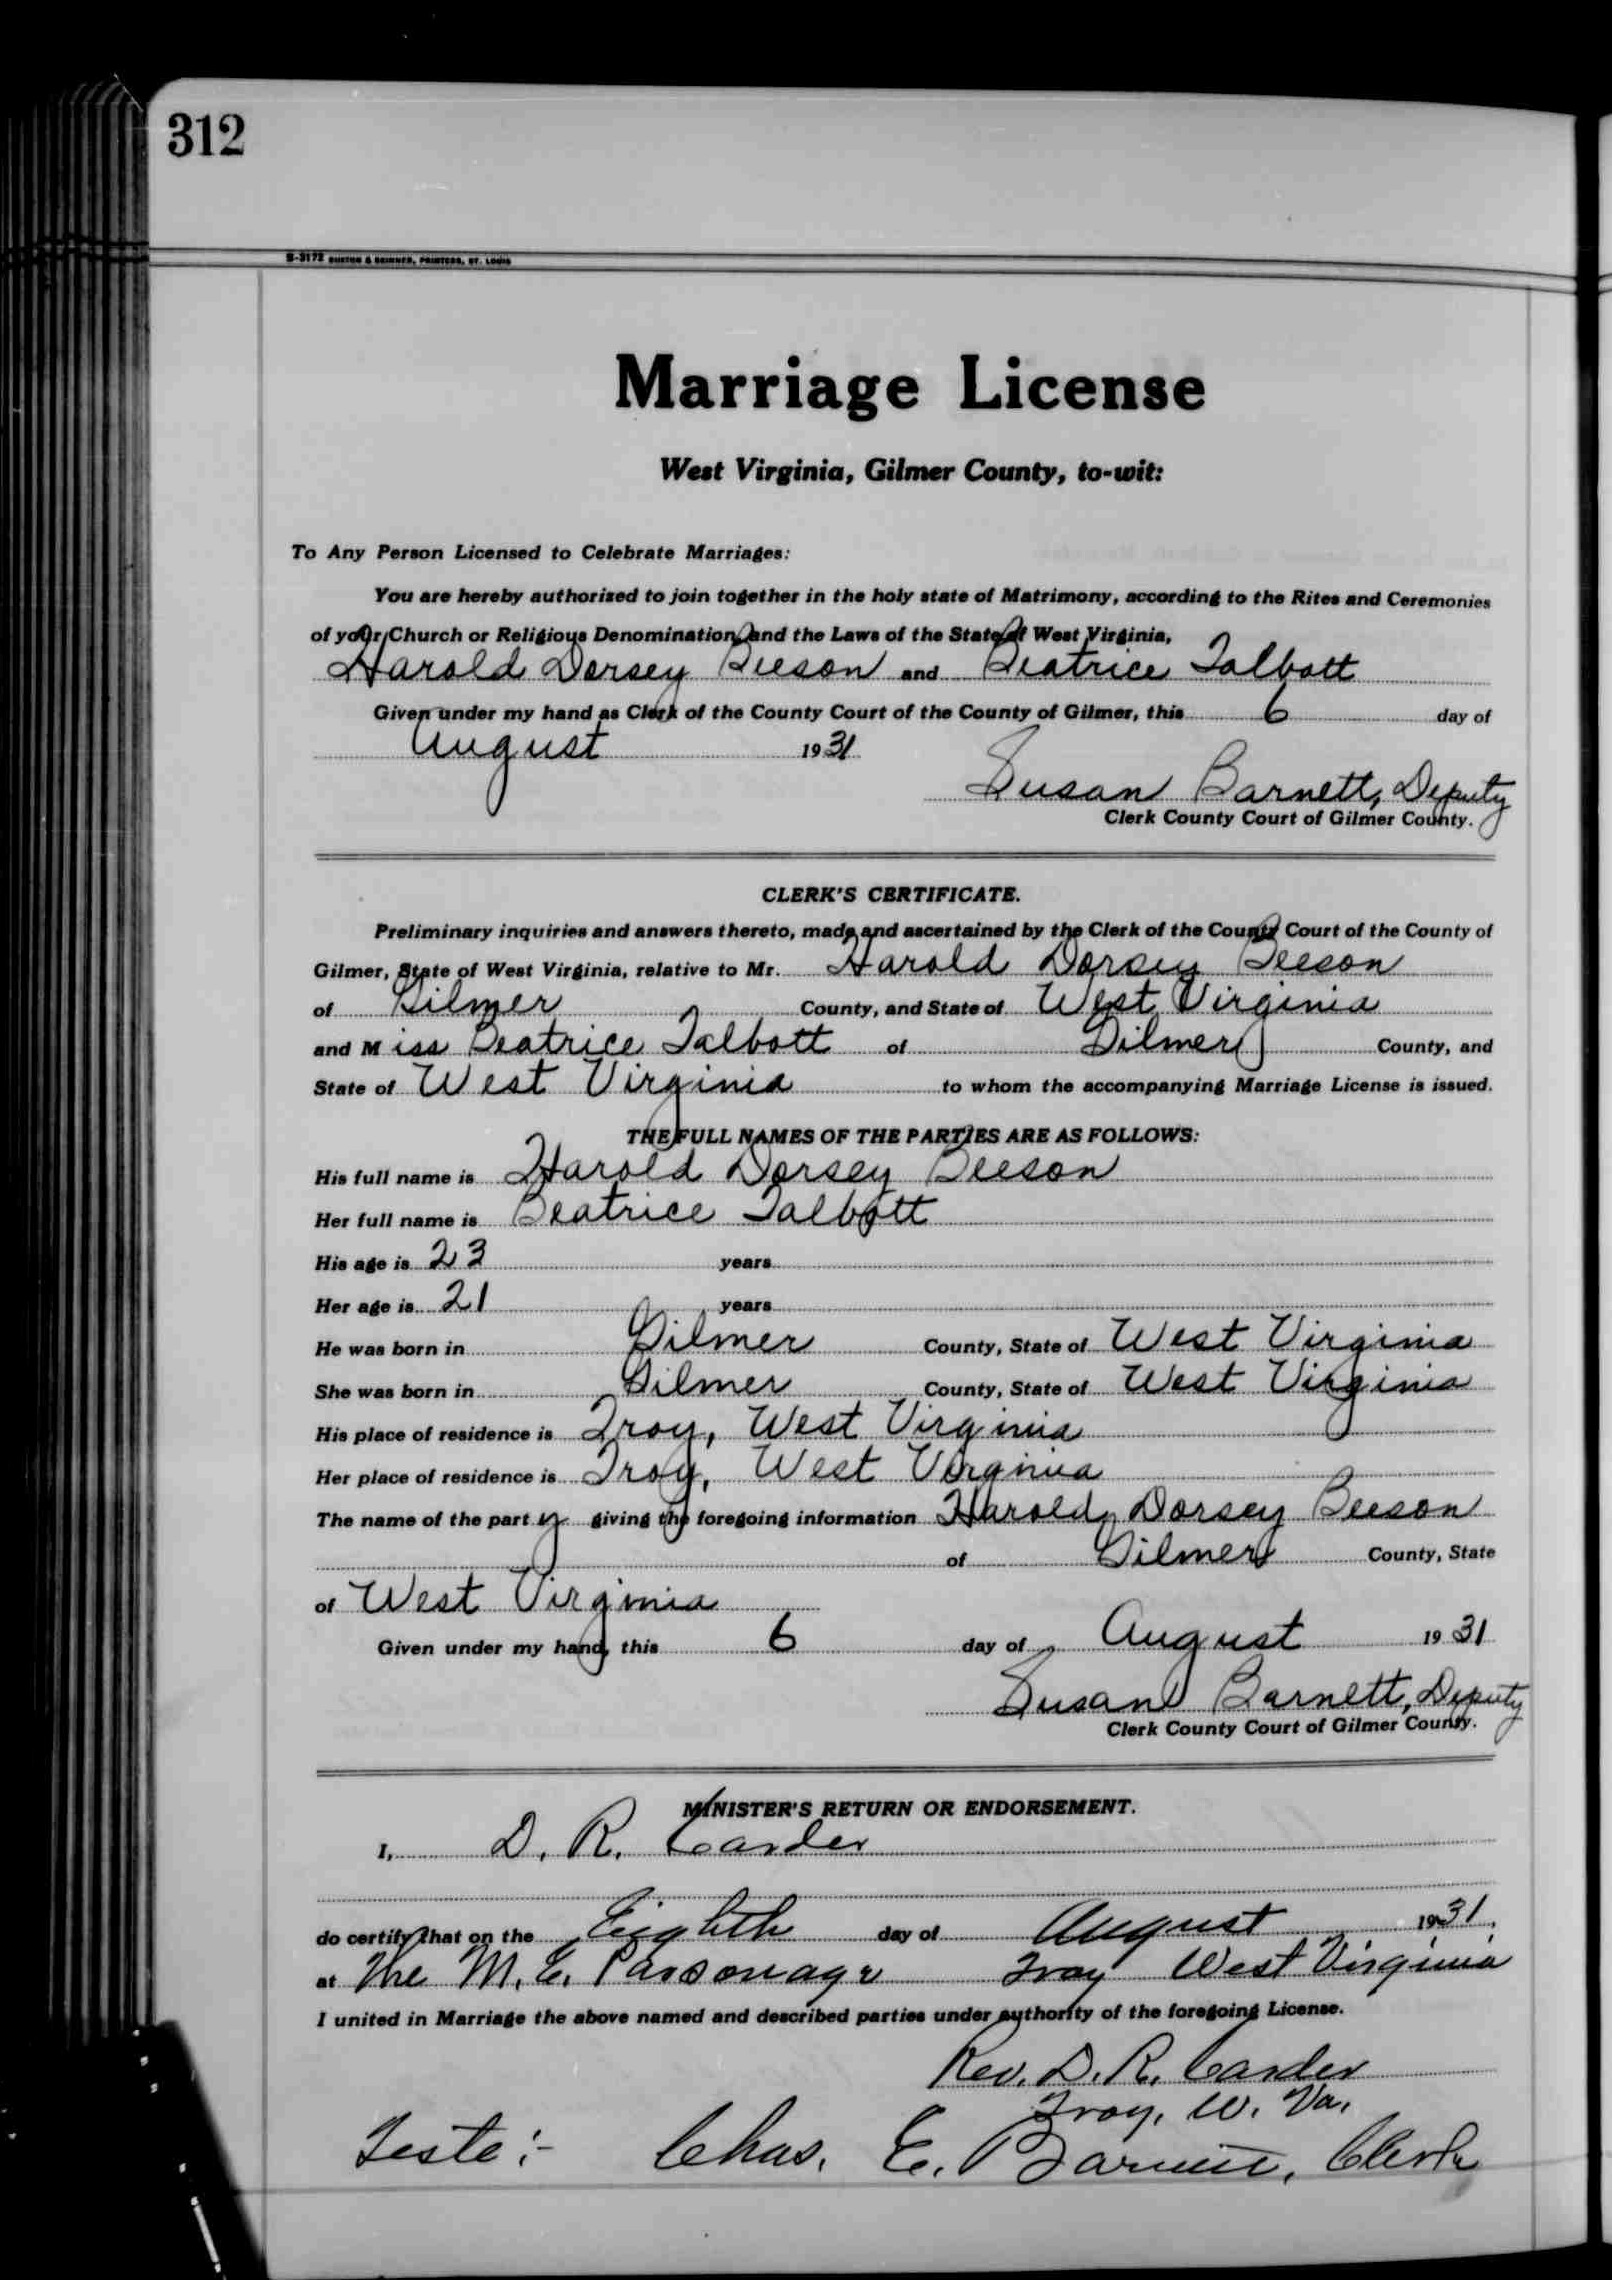 312
S-3172 BUXTON & SKINNER, PRINTERS, ST. LOUIS
Marriage License
West Virginia, Gilmer County, to-wit:
To Any Person Licensed to Celebrate Marriages:
You are hereby authorized to join together in the holy state of Matrimony, according to the Rites and Ceremonies
of your Church or Religious Denomination, and the Laws of the State of West Virginia,
Harold Dorsey Beeson and Beatrice Talbott
Given under my hand as Clerk of the County Court of the County of Gilmer, this 6 day of
August 1931
Susan Barnett, Deputy
Clerk County Court of Gilmer County.
CLERK'S CERTIFICATE.
Preliminary inquiries and answers thereto, made and ascertained by the Clerk of the County Court of the County of
Gilmer, State of West Virginia, relative to Mr. Harold Dorsey Beeson
of Gilmer County, and State of West Virginia
and Miss Beatrice Talbott of Gilmer County, and
State of West Virginia to whom the accompanying Marriage License is issued.
THE FULL NAMES OF THE PARTIES ARE AS FOLLOWS:
His full name is Harold Dorsey Beeson
Her full name is Beatrice Talbott
His age is 23 years
Her age is 21 years
He was born in Gilmer County, State of West Virginia
She was born in Gilmer County, State of West Virginia
His place of residence is Troy, West Virginia
Her place of residence is Troy, West Virginia
The name of the party giving the foregoing information Harold Dorsey Beeson
of Gilmer County, State
of West Virginia
Given under my hand, this 6 day of August 1931
Susan Barnett, Deputy
Clerk County Court of Gilmer County.
MINISTER'S RETURN OR ENDORSEMENT.
I, D. R. Carder
do certify that on the Eighth day of August 1931,
at The M. E. Parsonage Troy West Virginia
I united in Marriage the above named and described parties under authority of the foregoing License.
Rev. D. R. Carder
Troy, W. Va.
Teste:- Chas. E. Barnett, Clerk